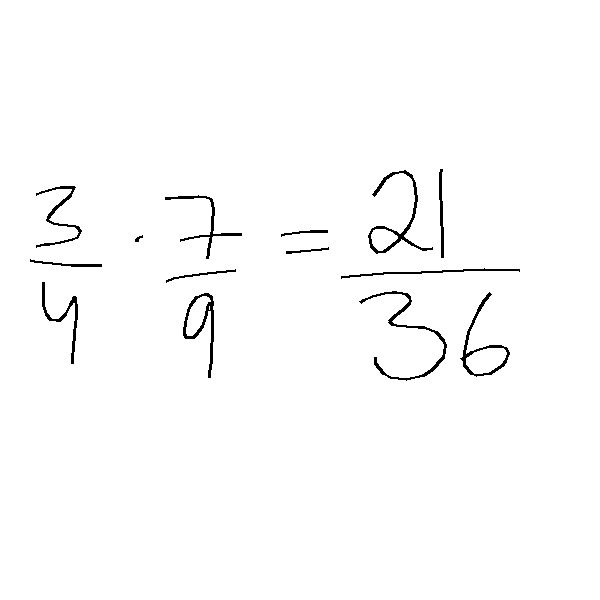 3/4 · 7/9 = 21/36